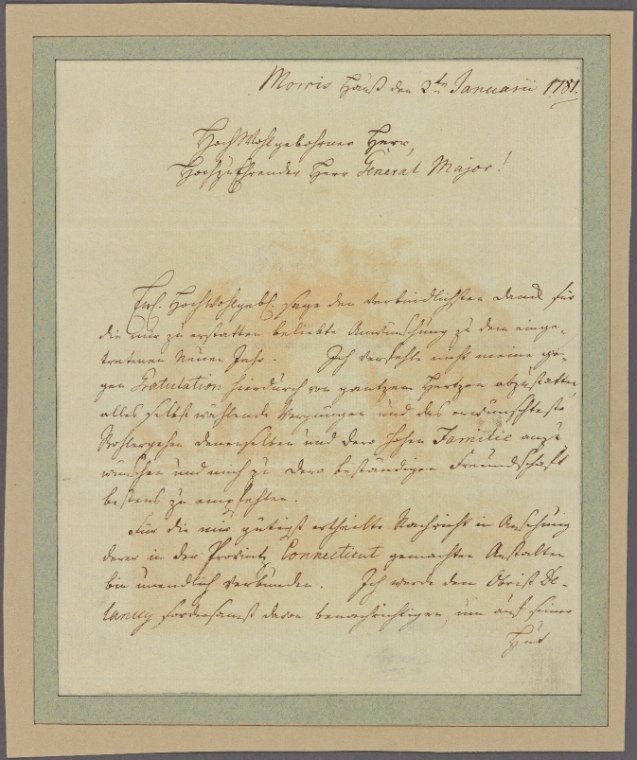 Morris Hauß den 2ten Januarii 1781.
HochWohlgebohrner Herr,
Hochzuehrender Herr General Major!
Ew. HochWohlgeb. sage den verbindlichsten Danck für
die mir zu erstatten beliebte Anwünschung zu dem einge-
tretenen Neuen Jahr. Ich verfehle nicht meine ge-
gen Gratulation hierdurch von gantzem Hertzen abzustatten,
alles selbst wählende Vergnügen und das erwünschteste
Wohlergehen denenselben und dero hohen Familie anzu
wünschen und mich zu dero beständigen Freundschafft
bestens zu empfehlen.
Für die mir gütigst ertheilte Nachricht in Ansehung
derer in der Provintz Connecticut gemachten Anstalten
bin unendlich verbunden. Ich werde dem Obrist De-
lancey fordersamst davon benachrichtigen, um auf seiner
Hut